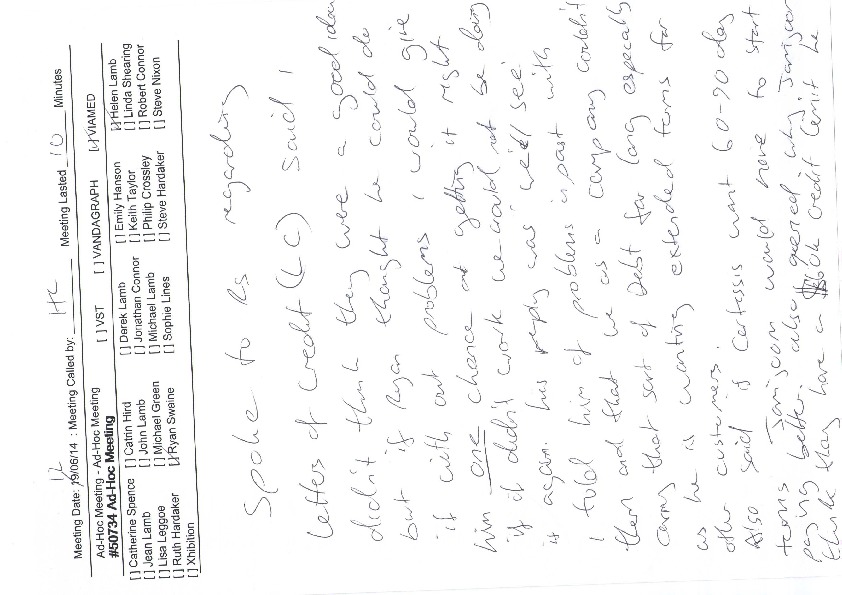 Meeting Date: 19/06/14 : Meeting Called by: HL Meeting Lasted 10 Minutes
12
Ad-Hoc Meeting - Ad-Hoc Meeting [ ] VST [ ] VANDAGRAPH [✓] VIAMED
#50734 Ad-Hoc Meeting
[ ] Catherine Spence [ ] Catrin Hird [ ] Derek Lamb [ ] Emily Hanson [✓] Helen Lamb
[ ] Jean Lamb [ ] John Lamb [ ] Jonathan Connor [ ] Keith Taylor [ ] Linda Shearing
[ ] Lisa Leggoe [ ] Michael Green [ ] Michael Lamb [ ] Philip Crossley [ ] Robert Connor
[ ] Ruth Hardaker [✓] Ryan Sweine [ ] Sophie Lines [ ] Steve Hardaker [ ] Steve Nixon
[ ] Xhibition
Spoke to RS regarding
letters of credit (LC) said I
didn't think they were a good idea
but if Ryan thought he could do
it with out problems I would give
him one chance at getting it right
if it didn't work we would not be doing
it again. his reply was 'we'll see'.
I told him of problems in past with
them and that we as a company couldn't
carry that sort of Debt for long especially
as he is wanting extended terms for
other customers.
Also said if Cartessis want 60-90 day
terms Janijcom would have to start
paying better. also queried why Janijcom
think they have a 80k credit limit be